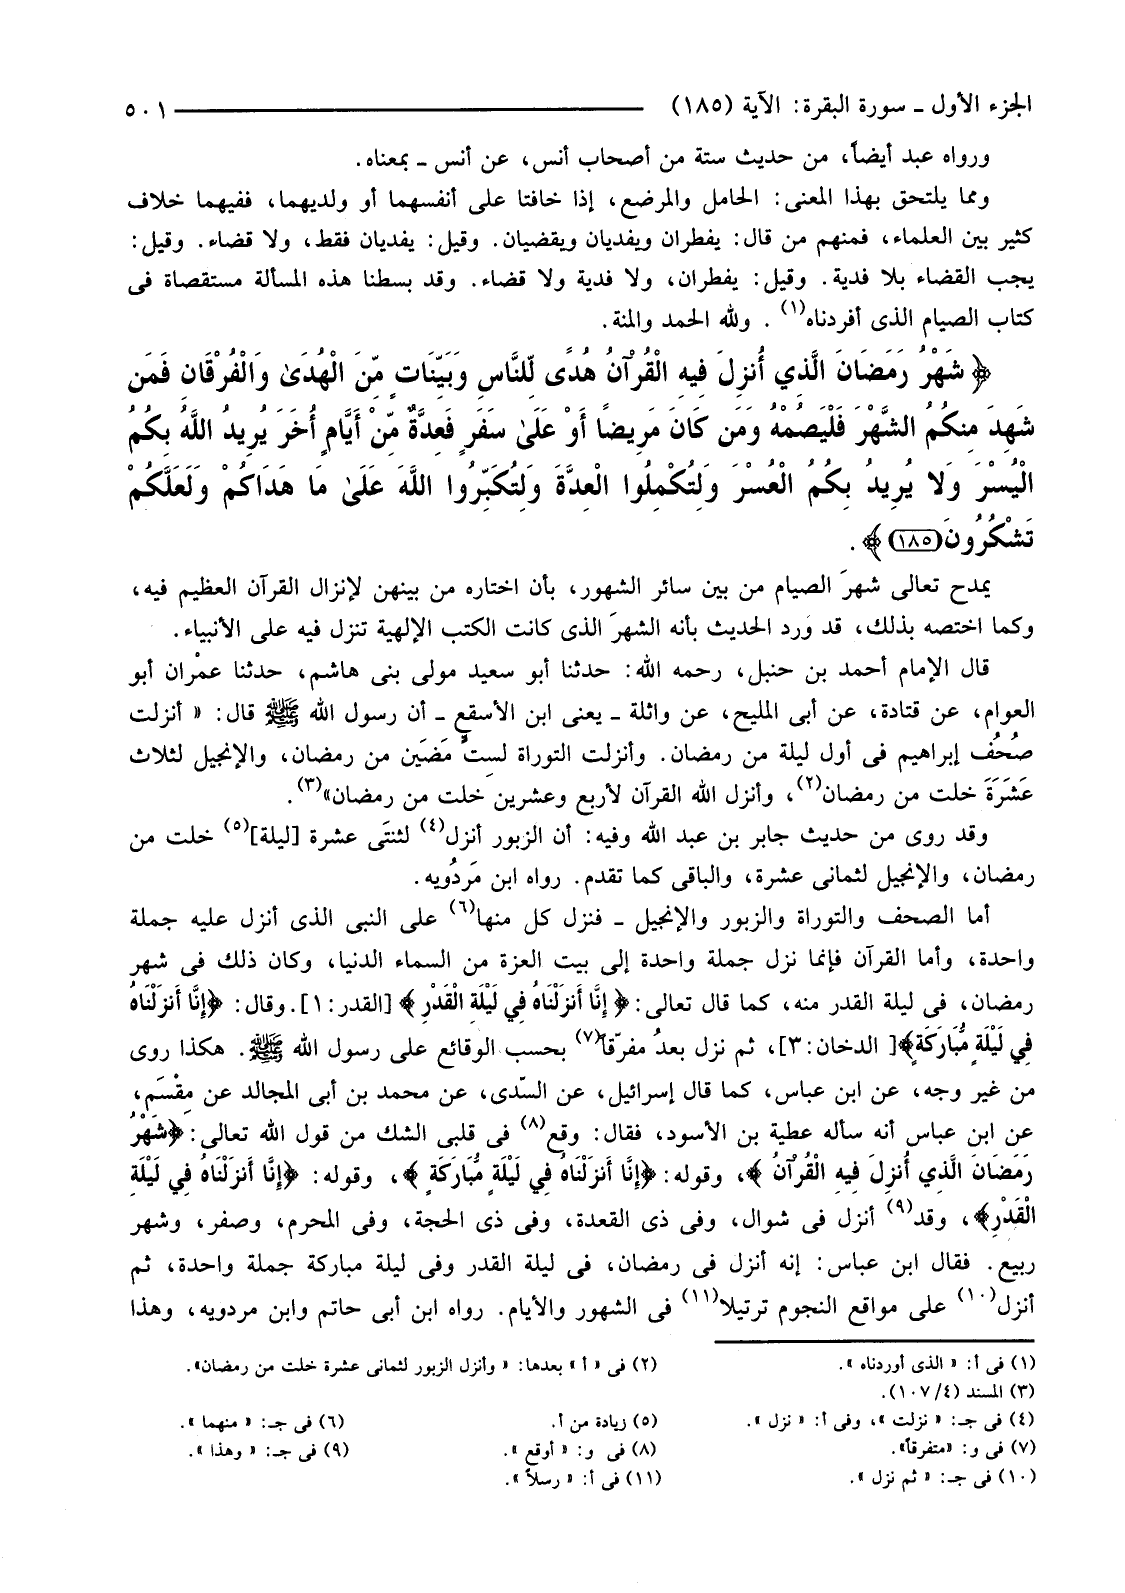 الجزء الأول ـ سورة البقرة: الآية (١٨٥) ٥٠١
ورواه عبد أيضاً، من حديث ستة من أصحاب أنس، عن أنس ـ بمعناه.
ومما يلتحق بهذا المعنى: الحامل والمرضع، إذا خافتا على أنفسهما أو ولديهما، ففيهما خلاف
كثير بين العلماء، فمنهم من قال: يفطران ويفديان ويقضيان. وقيل: يفديان فقط، ولا قضاء. وقيل:
يجب القضاء بلا فدية. وقيل: يفطران، ولا فدية ولا قضاء. وقد بسطنا هذه المسألة مستقصاة فى
كتاب الصيام الذى أفردناه(١) . ولله الحمد والمنة.
﴿ شَهْرُ رَمَضَانَ الَّذِي أُنزِلَ فِيهِ الْقُرْآنُ هُدًى لِّلنَّاسِ وَبَيِّنَاتٍ مِّنَ الْهُدَىٰ وَالْفُرْقَانِ فَمَن
شَهِدَ مِنكُمُ الشَّهْرَ فَلْيَصُمْهُ وَمَن كَانَ مَرِيضًا أَوْ عَلَىٰ سَفَرٍ فَعِدَّةٌ مِّنْ أَيَّامٍ أُخَرَ يُرِيدُ اللَّهُ بِكُمُ
الْيُسْرَ وَلا يُرِيدُ بِكُمُ الْعُسْرَ وَلِتُكْمِلُوا الْعِدَّةَ وَلِتُكَبِّرُوا اللَّهَ عَلَىٰ مَا هَدَاكُمْ وَلَعَلَّكُمْ
تَشْكُرُونَ (١٨٥) ﴾ .
يمدح تعالى شهرَ الصيام من بين سائر الشهور، بأن اختاره من بينهن لإنزال القرآن العظيم فيه،
وكما اختصه بذلك، قد وَرد الحديث بأنه الشهرَ الذى كانت الكتب الإلهية تنزل فيه على الأنبياء.
قال الإمام أحمد بن حنبل، رحمه الله: حدثنا أبو سعيد مولى بنى هاشم، حدثنا عمْران أبو
العوام، عن قتادة، عن أبى المليح، عن واثلة ـ يعنى ابن الأسقع ـ أن رسول الله ﷺ قال: « أنزلت
صُحُف إبراهيم فى أول ليلة من رمضان. وأنزلت التوراة لستٍّ مَضَين من رمضان، والإنجيل لثلاث
عَشَرَةَ خلت من رمضان(٢)، وأنزل الله القرآن لأربع وعشرين خلت من رمضان»(٣).
وقد روى من حديث جابر بن عبد الله وفيه: أن الزبور أنزل(٤) لثنتَى عشرة [ليلة](٥) خلت من
رمضان، والإنجيل لثمانى عشرة، والباقى كما تقدم. رواه ابن مَردُويه.
أما الصحف والتوراة والزبور والإنجيل ـ فنزل كل منها(٦) على النبى الذى أنزل عليه جملة
واحدة، وأما القرآن فإنما نزل جملة واحدة إلى بيت العزة من السماء الدنيا، وكان ذلك فى شهر
رمضان، فى ليلة القدر منه، كما قال تعالى: ﴿ إِنَّا أَنزَلْنَاهُ فِي لَيْلَةِ الْقَدْرِ ﴾ [القدر: ١]. وقال: ﴿إِنَّا أَنزَلْنَاهُ
فِي لَيْلَةٍ مُّبَارَكَةٍ﴾[ الدخان: ٣]، ثم نزل بعدُ مفرقّا(٧) بحسب الوقائع على رسول الله ﷺ. هكذا روى
من غير وجه، عن ابن عباس، كما قال إسرائيل، عن السّدى، عن محمد بن أبى المجالد عن مِقْسَم،
عن ابن عباس أنه سأله عطية بن الأسود، فقال: وقع(٨) فى قلبى الشك من قول الله تعالى: ﴿شَهْرُ
رَمَضَانَ الَّذِي أُنزِلَ فِيهِ الْقُرْآنُ ﴾، وقوله: ﴿إِنَّا أَنزَلْنَاهُ فِي لَيْلَةٍ مُّبَارَكَةٍ ﴾، وقوله: ﴿إِنَّا أَنزَلْنَاهُ فِي لَيْلَةِ
الْقَدْرِ﴾، وقد(٩) أنزل فى شوال، وفى ذى القعدة، وفى ذى الحجة، وفى المحرم، وصفر، وشهر
ربيع. فقال ابن عباس: إنه أنزل فى رمضان، فى ليلة القدر وفى ليلة مباركة جملة واحدة، ثم
أنزل(١٠) على مواقع النجوم ترتيلا(١١) فى الشهور والأيام. رواه ابن أبى حاتم وابن مردويه، وهذا
(١) فى أ: « الذى أوردناه ». (٢) فى « أ » بعدها: « وأنزل الزبور لثمانى عشرة خلت من رمضان».
(٣) المسند (٤/ ١٠٧).
(٤) فى جـ: « نزلت »، وفى أ: « نزل ». (٥) زيادة من أ. (٦) فى جـ: « منهما ».
(٧) فى و: «متفرقاً». (٨) فى و: « أوقع ». (٩) فى جـ: « وهذا ».
(١٠) فى جـ: « ثم نزل ». (١١) فى أ: « رسلاً ».